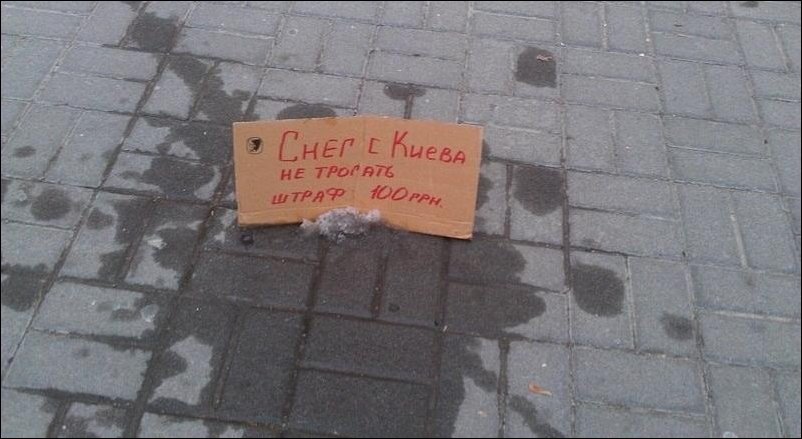 Снег с Киева
не трогать
штраф 100грн.